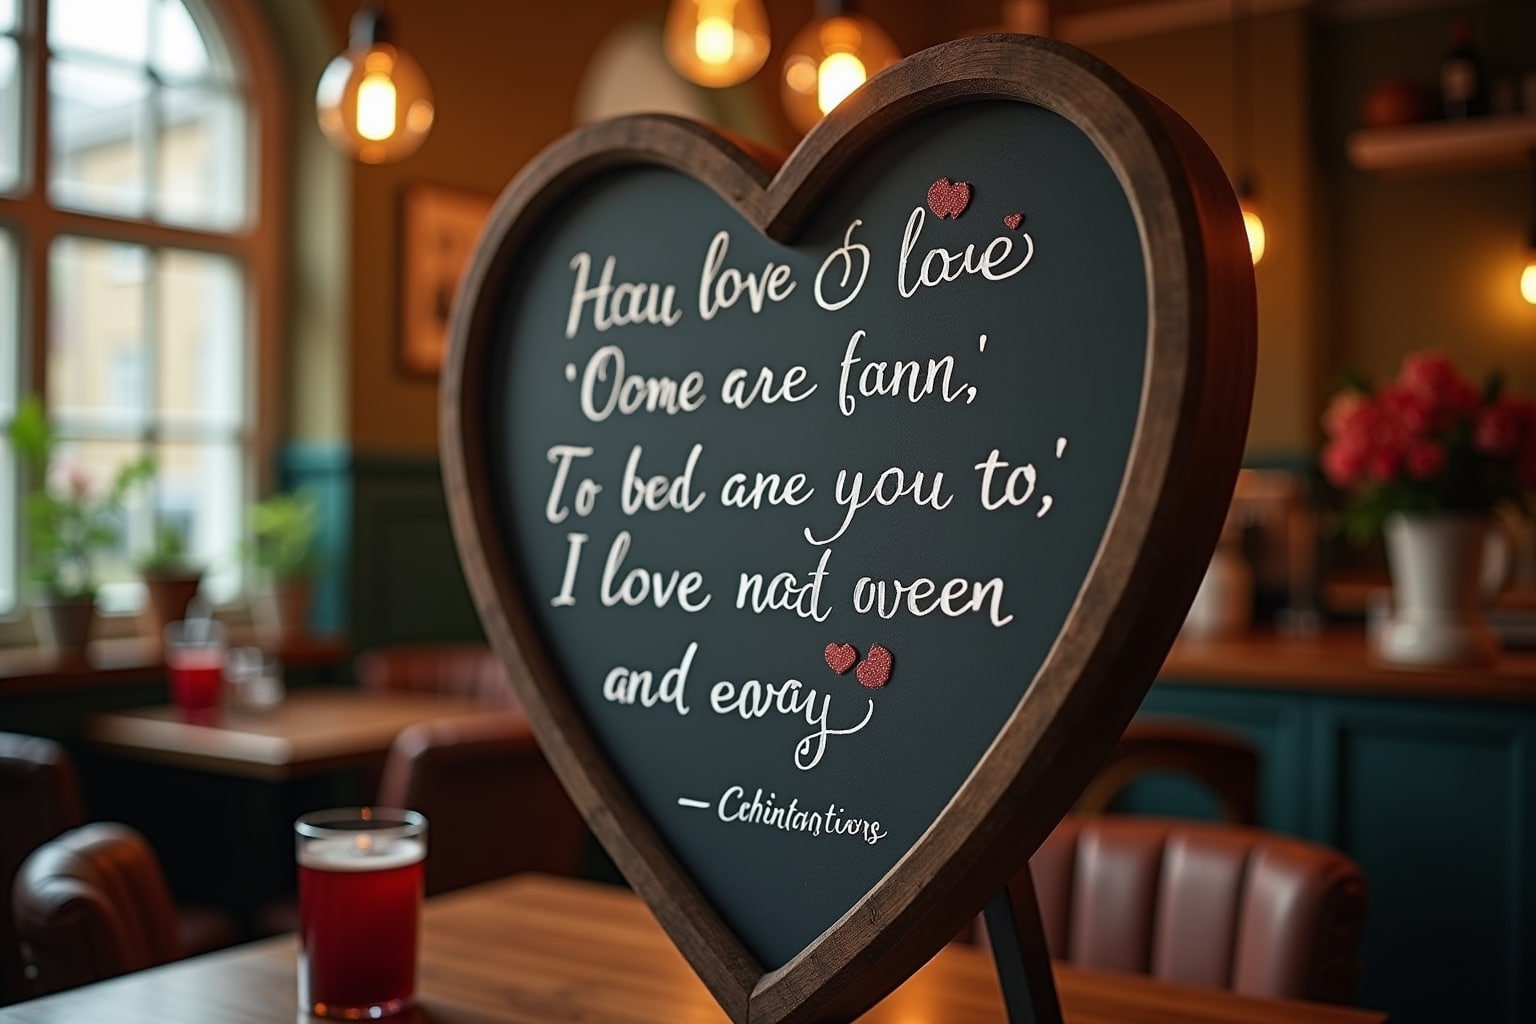 Hau love & love
'Oome are fann,'
To bed ane you to,'
I love nad oveen
and eavay
— Cchintantions